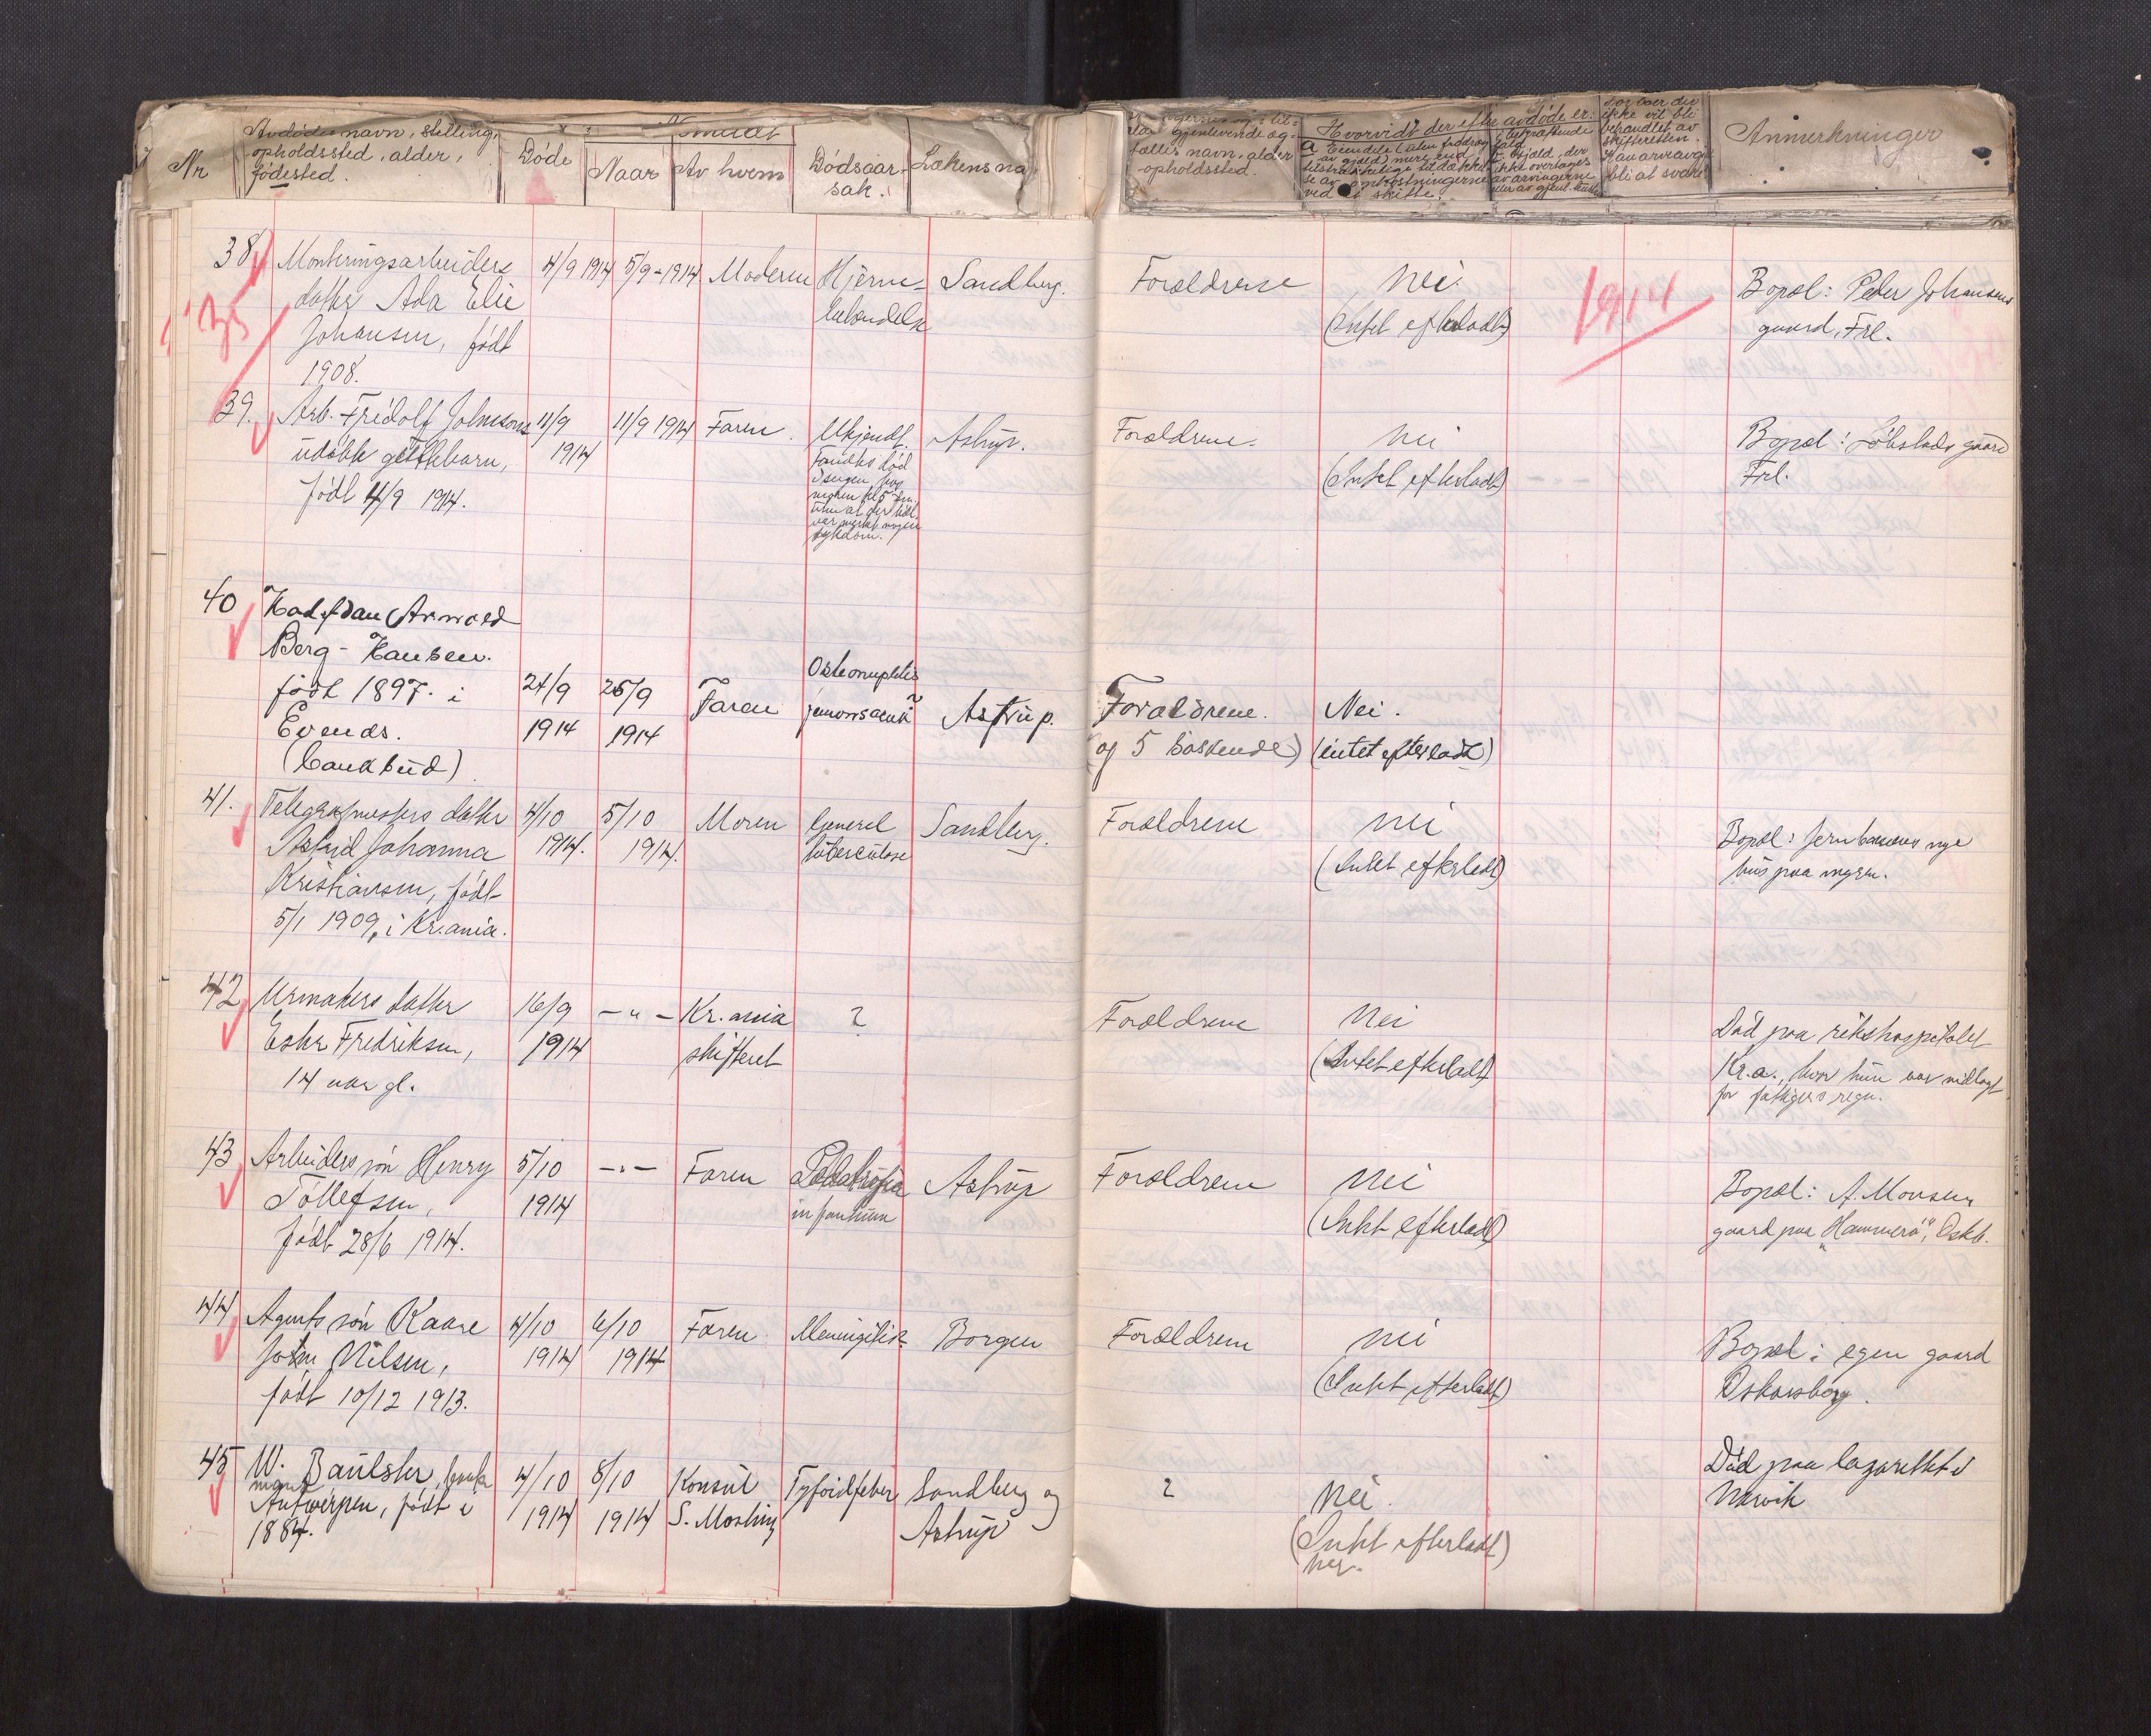 Nr
Avdødes navn, stilling,
opholdssted, alder,
fødested.
Døde
Anmeldt
Naar
Av hvem
Dødsaar-
sak.
Lækens na
gjenlevende æg-
fælles navn, alder
opholdssted.
Hvorvidt der efter avdøde er:
a Eiendele (uten fradrag
av gjæld) mere end
tilstrækkelige til dække
se av omkostningerne
ved et skifte.
ikke overtages
av arvingerne
ikke vil bli
behandlet av
skifteretten.
Kan arveavg
bli at svare
Anmerkninger
38
Monteringsarbeiders
datter Ada Elie
Johansen, født
1908.
4/9 1914
5/9-1914
Moderen
Hjerne-
betændelse
Sandberg.
Forældrene
Nei.
(Intet efterladt)
1914
Bopæl: Peder Johansens
gaard, Frl.
35
39.
Arb. Fridolf Johnsons
udøbte guttebarn,
født 4/9 1914.
11/9
1914
11/9 1914
Faren.
Ukjendt.
Fandtes død
i sengen paa
morgen kl 5
uten at der
var merket nogen
sykdom.
Astrup.
Forældrene.
Nei
(Intet efterladt)
Bopæl: Løkstads gaard
Frl.
40
Halfdan Arnold
Berg-Hansen.
født 1897. i
Evends.
(bankbud)
24/9
1914
25/9
1914
Faren
Astrup.
Forældrene.
(og 5 søskende)
Nei.
(intet efterladt)
41.
Telegrafmesters datter
Astrid Johanna
Kristiansen, født
5/1 1909, i Kr.ania.
4/10
1914.
5/10
1914.
Moren
Generel
tuberculose
Sandberg.
Forældrene
Nei
(Intet efterladt)
Bopæl: Jernbanens nye
hus paa myren.
42
Urmakers datter
Ester Fredriksen,
14 aar gl.
16/9
1914
- " -
Kr.ania
skifteret
?
Forældrene
Nei
(Intet efterladt)
Død paa rikshospitalet
Kr.a., hvor hun var indlagt
for fattiges regn.
43
Arbeiders søn Henry
Tollefsen,
født 28/6 1914.
5/10
1914
- " -
Faren
Pædatrofia
infantum
Astrup
Forældrene
Nei
(Intet efterladt)
Bopæl: A. Monsens
gaard paa "Hammerø", Oskb.
44
Agents søn Kaare
John Nilsen,
født 10/12 1913.
4/10
1914
6/10
1914
Faren
Meningitis
Borgen
Forældrene
Nei
(Intet efterladt)
Bopæl: egen gaard
Oskarsborg.
45
W. Baulster,
Antwerpen, født i
1884.
4/10
1914
8/10
1914
Konsul
S. Mosling
Tyfoidfeber
Sandberg og
Astrup
?
Nei.
(Intet efterladt)
her.
Død paa lazarettet i
Narvik